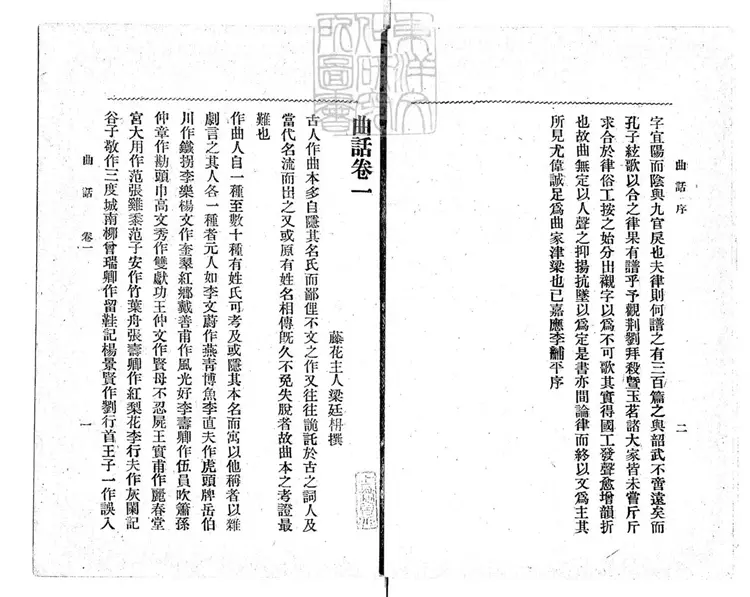 曲話序
二
字宜陽而陰與九宮戾也夫律則何譜之有三百篇之與韶武不啻遠矣而
孔子絃歌以合之律果有譜乎予觀荆劉拜殺暨玉茗諸大家皆未嘗斤斤
求合於律俗工按之始分出襯字以爲不可歌其實得國工發聲愈增韻折
也故曲無定以人聲之抑揚抗墜以爲定是書亦間論律而終以文爲主其
所見尤偉誠足爲曲家津梁也已嘉應李黼平序
曲話卷一
藤花主人梁廷枏撰
古人作曲本多自隱其名氏而鄙俚不文之作又往往詭託於古之詞人及
當代名流而出之又或原有姓名相傳旣久不免失脫者故曲本之考證最
難也
作曲人自一種至數十種有姓氏可考及或隱其本名而寓以他稱者以雜
劇言之其人各一種者元人如李文蔚作燕靑博魚李直夫作虎頭牌岳伯
川作鐵拐李樂楊文作奎翠紅鄉戴善甫作風光好李壽卿作伍員吹簫孫
仲章作勘頭巾高文秀作雙獻功王仲文作賢母不忍屍王實甫作麗春堂
宮大用作范張雞黍范子安作竹葉舟張壽卿作紅梨花李行夫作灰闌記
谷子敬作三度城南柳曾瑞卿作留鞋記楊景賢作劉行首王子一作誤入
曲話 卷一
一